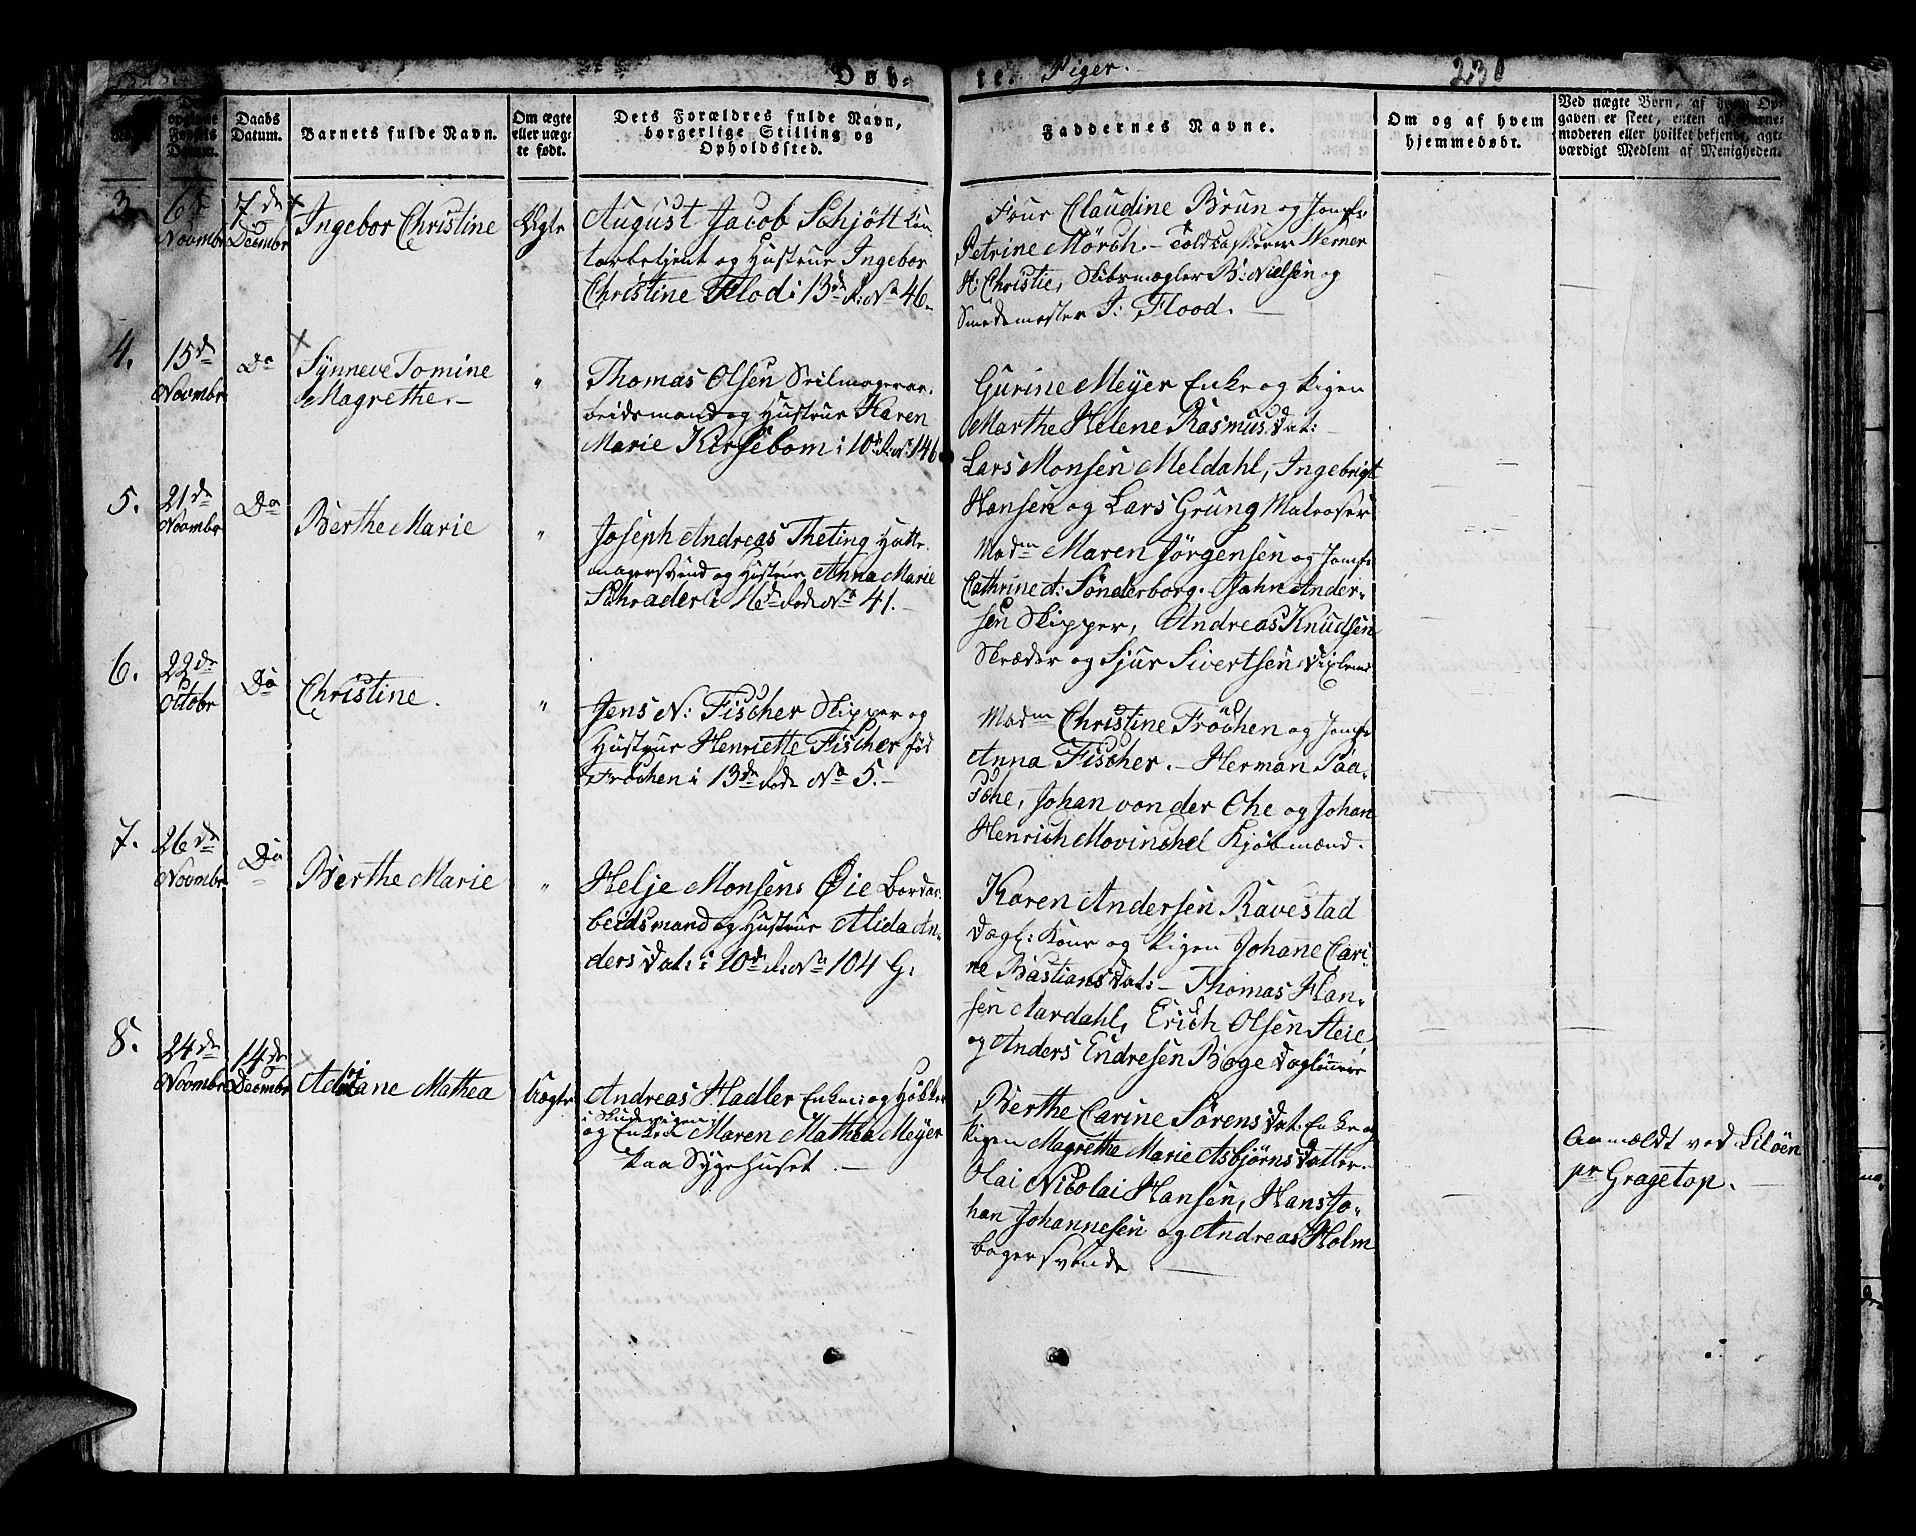 Døb-
te.
Piger.
230
Daabs
Datum.
Barnets fulde Navn.
Om ægte
eller uæg-
te født.
Dets Forældres fulde Navn,
borgerlige Stilling og
Opholdssted.
Faddernes Navne.
Om og af hvem
hjemmedøbt.
Ved uægte Børn, af hvem Op-
gaven er skeet, enten af Barne-
moderen eller hvilket bekjendt, agt-
værdigt Medlem af Menigheden.
3.
6te
Novmbr
7de
Decmbr
Ingebor Christine
Ægte
August Jacob Schjött Con-
torbetjent og Hustrue Ingebor
Christine Flod i 13de R. No 46.
Frue Claudine Brun og Jomfr
Petrine Mörch. - Toldcasserer Werner
H: Christie, Skibsmægler B: Nielsen og
Smedemester J: Flood.
4.
15de
Novmbr
Do
Synneve Tomine
Magrethe. -
"
Thomas Olsen Seilmagerar-
beidsmand og Hustrue Karen
Marie Kirsebom i 10de R. No 146
Gurine Meyer Enke og Pigen
Marthe Helene RasmusDat:
Lars Monsen Meldahl, Ingebrigt
Hansen og Lars Grung Matroser
5.
21de
Novmbr
Do
Berthe Marie
"
Joseph Andreas Theting Hatte-
magersvend og Hustrue Anna Marie
Schrader i 16de Rode No 41. -
Madm Maren Jörgensen og Jomfr
Cathrine A: Sönderborg. John Ander-
sen Skipper, Andreas Knudsen
Skræder og Sjur Sivertsen
6.
22de
Octobr
Do
Christine.
"
Jens N: Fischer Skipper og
Hustrue Henriette Fischer föd
Fröchen i 13de Rode No 5. -
Madm Christine Fröchen og Jomfr
Anna Fischer. - Herman Paa-
sche, Johan von der Ohe og Johan
Henrich Movinchel Kjöbmænd.
7.
26de
Novmbr
Do
Berthe Marie
"
Helje Monsens Øie Bordar-
beidsmand og Hustrue Alida An-
dersDat: i 20de R. No 104 G:
Karen Andersen Ravestad
Dagl: Kone og Pigen Johane Cari-
ne BastiansDat: - Thomas Han-
sen Aardahl, Erich Olsen Steie,
og Anders Endresen Boge Daglönnere
8.
24de
Novmbr
14de
Decmbr
Adriane Mathea
Uægte
Andreas Hadler Enkem: og Høkker
i Skudevigen
og Enken Maren Mathea Meyer
paa Sygehuset. -
Berthe Carine SörensDat: Enke og
Pigen Magrethe Marie AsbjörnsDatter.
Olai Nicolai Hansen, Hans Jo-
han Johannesen og Andreas Holm
bagersvende. -
Anmældt ved
pr Gragetop. -